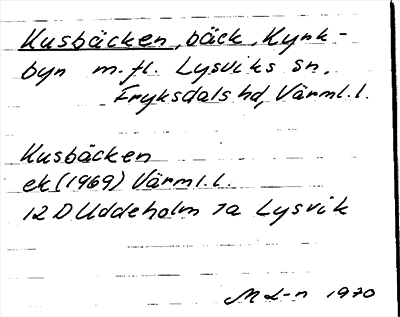 Kusbäcken, bäck, Kyrk-
byn m.fl. Lysviks sn,
Fryksdals hd, Värml.l.
Kusbäcken
ek (1969) Värml.l.
12 D Uddeholm 7a Lysvik
M L-n 1970